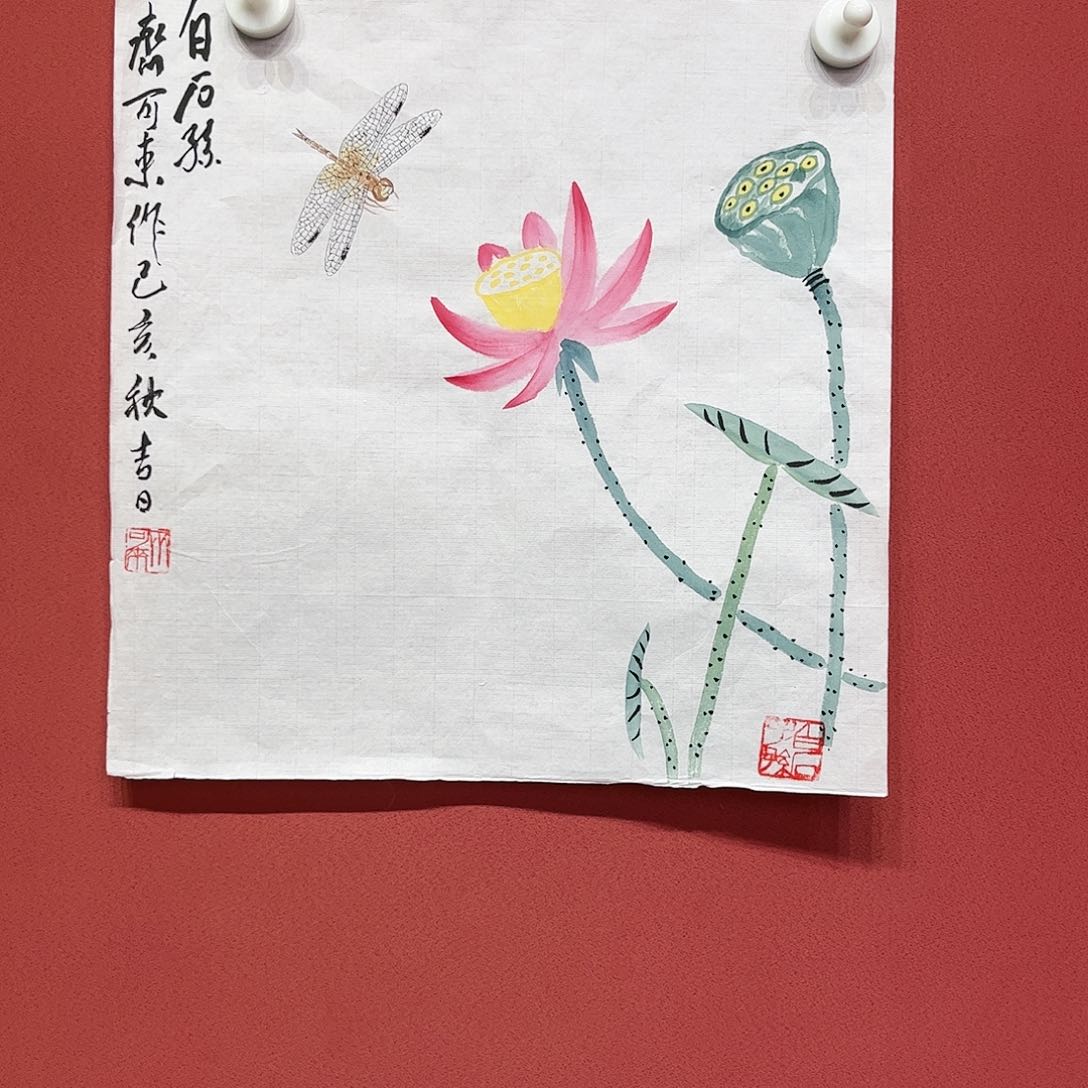 白石孫
齊可來作己亥秋吉日